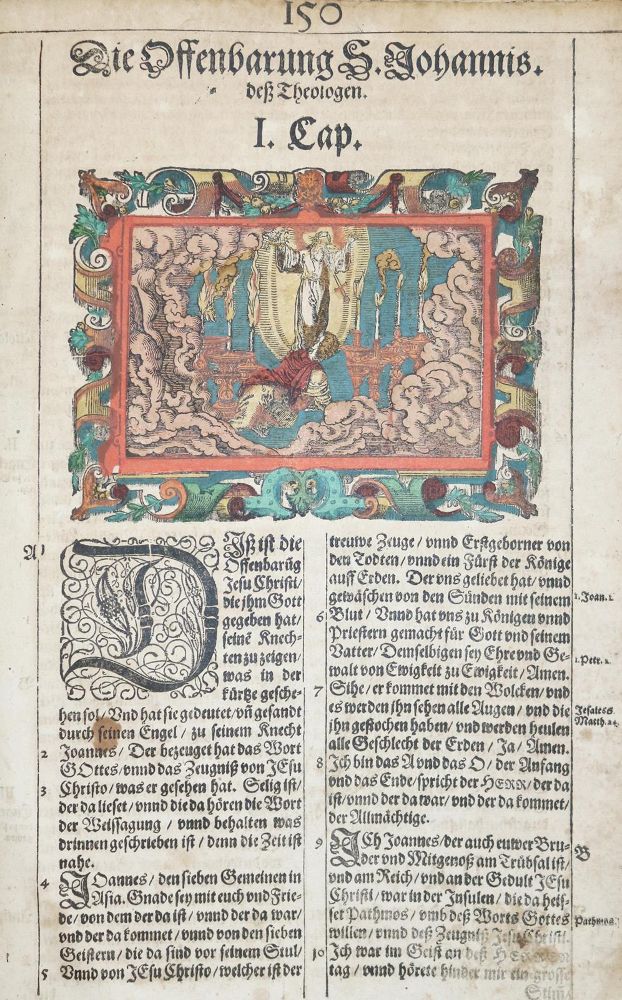 150
Die Offenbarung S. Johannis.
deß Theologen.
I. Cap.
A
1
DIß ist die
Offenbarūg
Jesu Christi/
die ihm Gott
gegeben hat/
seinē Knech-
ten zu zeigen/
was in der
kürtze gesche-
hen sol/ Vnd hat sie gedeutet/ vñ gesandt
durch seinen Engel/ zu seinem Knecht
2 Joannes/ Der bezeuget hat das Wort
GOttes/ vnnd das Zeugniß von JEsu
3 Christo/ was er gesehen hat. Selig ist/
der da lieset/ vnnd die da hören die Wort
der Weissagung/ vnnd behalten was
drinnen geschrieben ist/ denn die Zeit ist
nahe.
4 JOannes/ den sieben Gemeinen in
Asia. Gnade sey mit euch vnd Frie-
de/ von dem der da ist/ vnnd der da war/
vnd der da kommet/ vnnd von den sieben
Geistern/ die da sind vor seinem Stul/
5 Vnnd von JEsu Christo/ welcher ist der
treuwe Zeuge/ vnnd Erstgeborner von
den Todten/ vnnd ein Fürst der Könige
auff Erden. Der vns geliebet hat/ vnnd
gewäschen von den Sünden mit seinem
1. Joan. 1.
6 Blut/ Vnnd hat vns zu Königen vnnd
Priestern gemacht für Gott vnd seinem
Vatter/ Demselbigen sey Ehre vnd Ge-
1. Petr. 2.
walt von Ewigkeit zu Ewigkeit/ Amen.
7 Sihe/ er kommet mit den Wolcken/ vnd
es werden ihn sehen alle Augen/ vnd die
Jesaie
Matth. 24.
ihn gestochen haben/ vnd werden heulen
alle Geschlecht der Erden/ Ja/ Amen.
8 Ich bin das A vnd das O/ der Anfang
vnd das Ende/ spricht der HERR/ der da
ist/ vnnd der da war/ vnd der da kommet/
der Allmächtige.
9 JCh Joannes/ der auch euwer Bru-
B
der vnd Mitgenoß am Trübsal ist/
vnd am Reich/ vnd an der Gedult JEsu
Christi/ war in der Insulen/ die da heis-
set Pathmos/ vmb deß Worts Gottes
Pathmos.
willen/ vnnd deß Zeugniß Jesu Christi.
10 Ich war im Geist an deß HERREN
tag/ vnnd hörete hinder mir ein grosse
Stim/